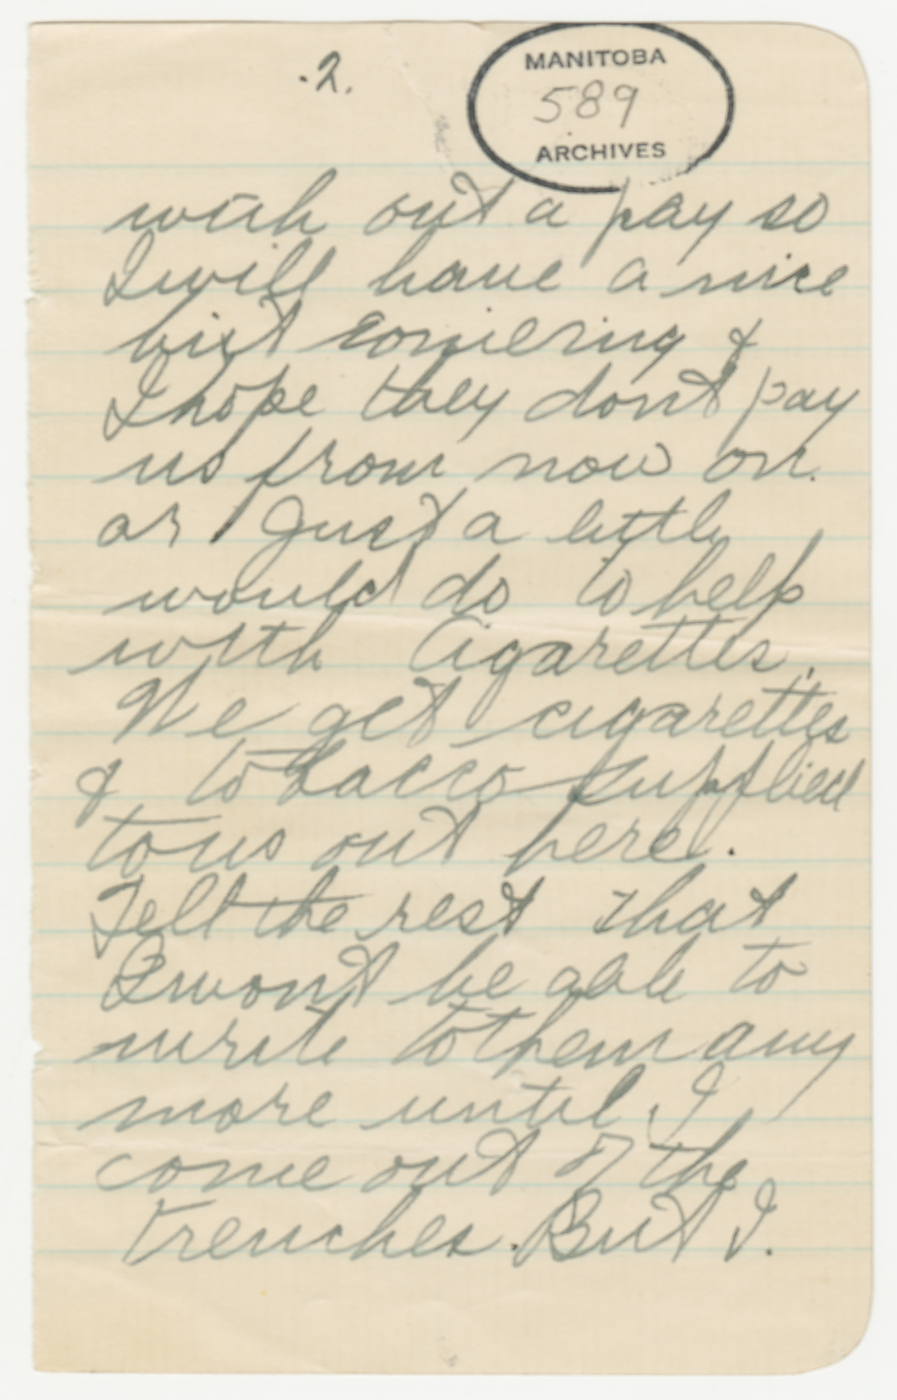 .2.
MANITOBA
589
ARCHIVES
with out a pay so
I will have a nice
bist comeing &
I hope they dont pay
us from now on.
or Just a little
would do to help
with Cigarettes.
We get cigarettes
& tobacco supplied
to us out here.
Tell the rest that
I wont be able to
write to them any
more until I
come out of the
trenches. But I.